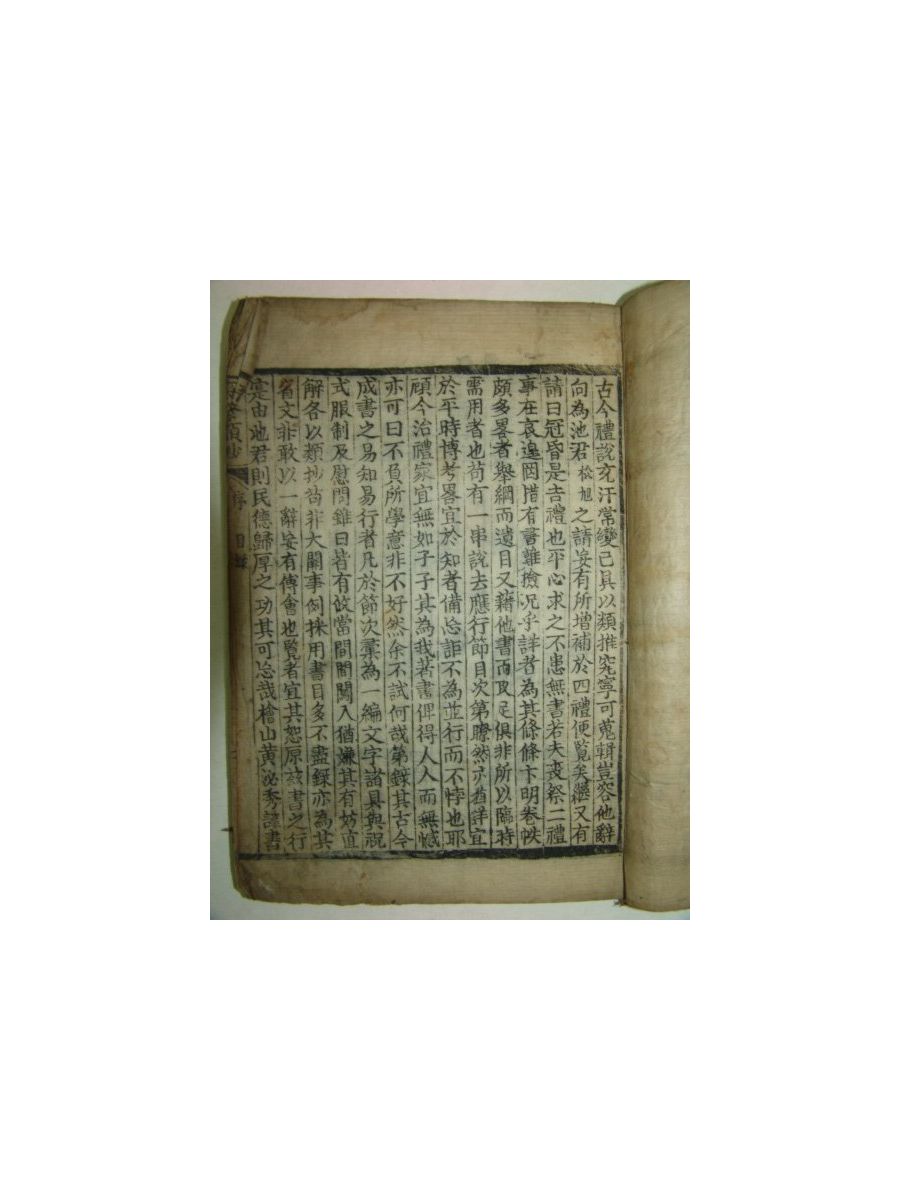 古今禮說充汗常變已具以類推究寧可蒐輯豈容他辭
向為池君松旭之請妄有所增補於四禮便覧矣繼又有
請曰冠昏是吉禮也平心求之不患無書若夫喪祭二禮
事在哀遑罔措有書難撿况乎詳者為其條條卞明卷帙
頗多畧者舉綱而遺目又藉他書而取足俱非所以臨時
需用者也苟有一串說去應行節目次第瞭然亦甞詳宜
於平時博考畧宜於知者備忘詎不為並行而不悖也耶
頋今治禮家宜無如子子其為我著書俾得人人而無憾
亦可曰不負所學意非不好然余不試何哉第録其古今
成書之易知易行者凡於節次彙為一編文字諸具與祝
式服制及慰問雖曰若有攸當間間闖入猶嫌其有妨直
解各以類抄苟非大関事例採用書目多不盡録亦為其
省文非敢以一辭妄有傅會也覧者宜其恕原玆書之行
寔由池君則民德歸厚之功其可忘哉檜山黄泌秀謹書